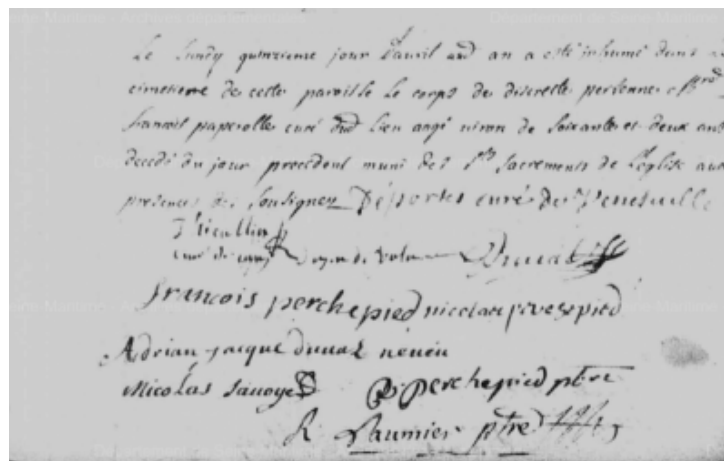 Le lundy quinzieme jour d'avril aud an a esté inhumé dans le
cimetiere de cette paroisse le corps de discrette personne Mre
francois paperolle curé dud lieu aagé viron de soixante et deux ans
decedé du jour precedent muni des Sts Sacrements de l'eglise aux
presences des soussignez Desportes curé de Veneville
Thieullin
curé de doyen de Duval
francois perchepied nicolas percepied
Adrian Jacque duval neveu
Nicolas Savoye perchepied ptre
R Laumier ptre